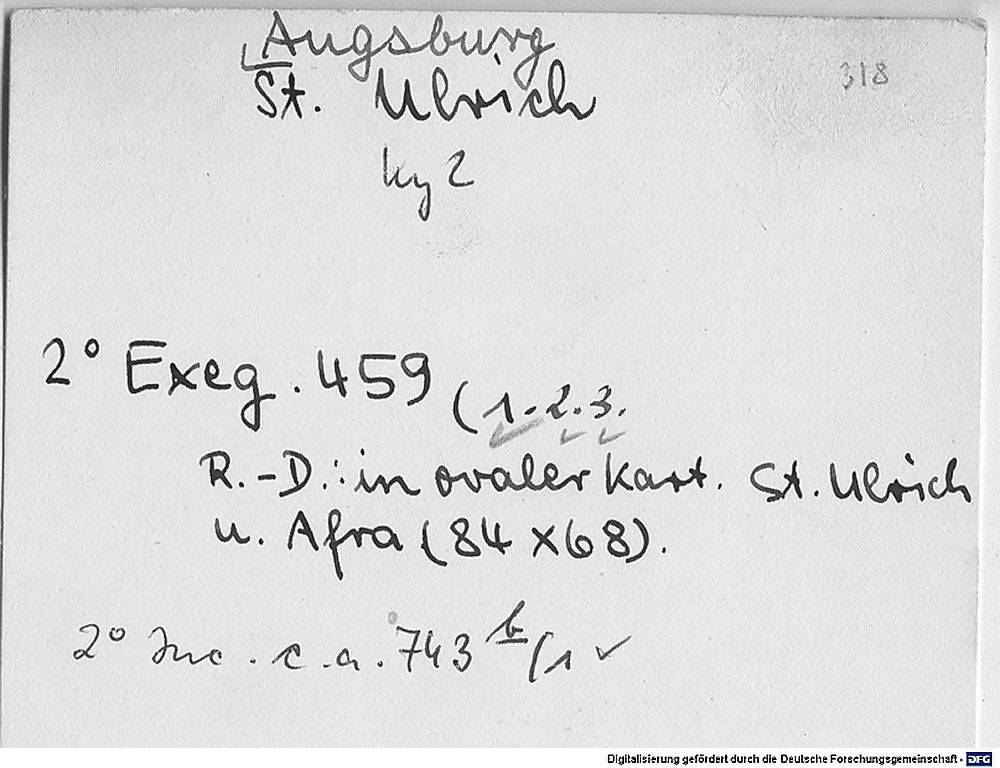 Augsburg
318
St. Ulrich
ky 2
2° Exeg. 459 (1. 2. 3.
R.-D.: in ovaler Kart. St. Ulrich
u. Afra (84 x 68).
2° Inc. c. a. 743 b/1 ✓
Digitalisierung gefördert durch die Deutsche Forschungsgemeinschaft - DFG